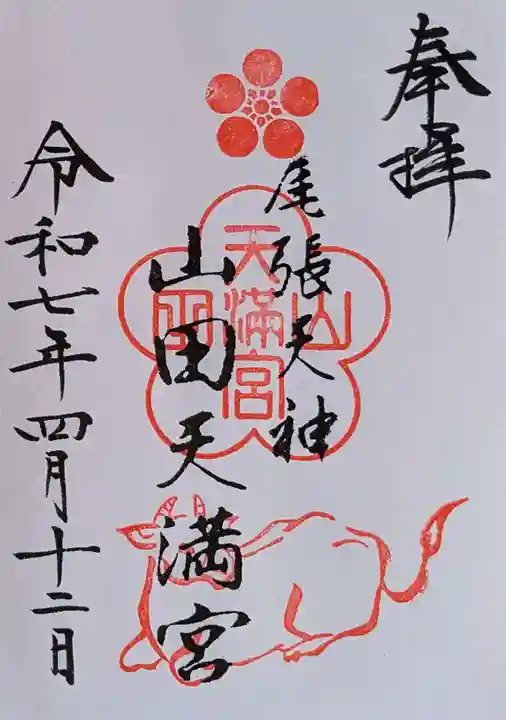 奉拝
尾張天神
山田天満宮
山田
天満宮
令和七年四月十二日